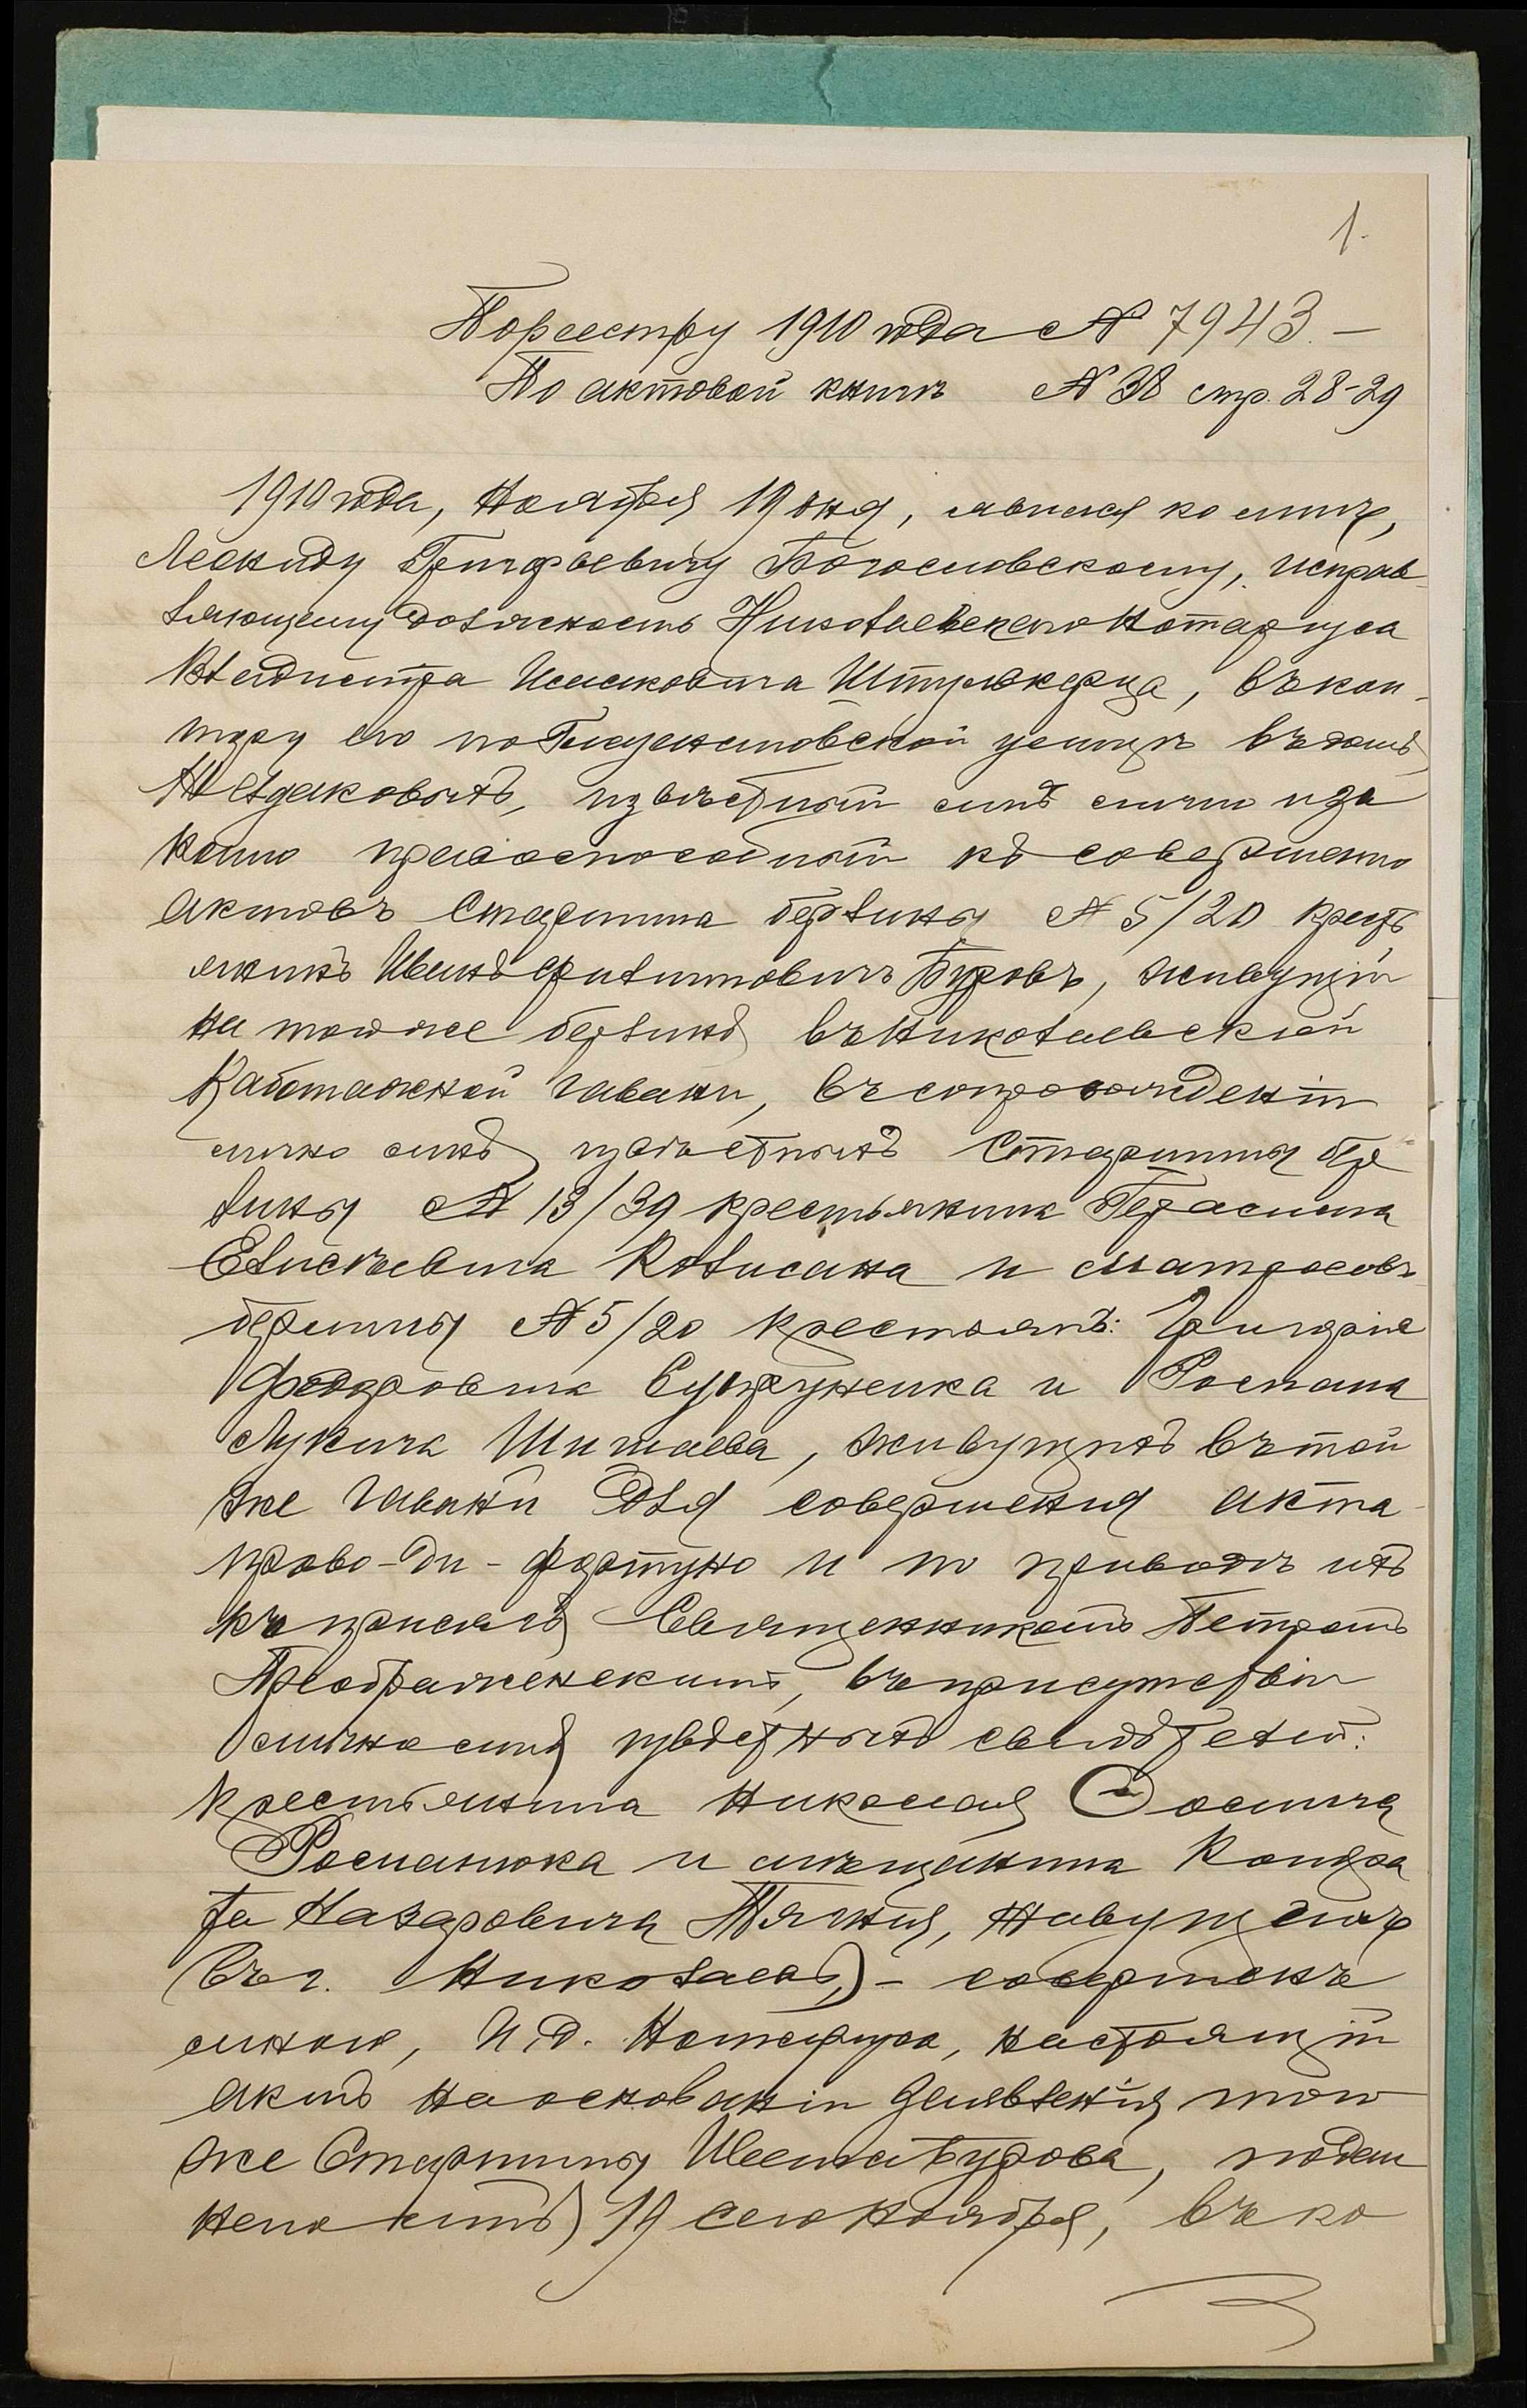 1.
По реестру 1910 года № 7943.—
По актовой книгѣ № 38 стр. 28-29
1910 года, Ноября 19 дня, явился ко мнѣ,
Леониду Григорьевичу Богословскому, исправ-
ляющему должность Николаевскаго Нотаріуса
Владиміра Исааковича , въ кон-
тору его по улицѣ въ домѣ
, извѣстный мнѣ лично и за
конно правоспособный къ совершенію
актовъ Старшина берлины № 5/20 кресть
янинъ Иванъ Филипповичъ Буровъ, живущій
на той же берлинѣ въ Николаевской
Каботажной гавани, въ сопровожденіи
лично мнѣ извѣстныхъ Старшины бер
лины № 13/39 крестьянина Герасима
Елисѣевича и матросовъ
берлины № 5/20 крестьянъ: Григорія
Федоровича Супруненка и Романа
Лукича Шипаева, живущихъ въ той
же гавани для совершенія акта
прово-ди-фортуно и по приводѣ ихъ
къ присягѣ Священникомъ Петромъ
Преображенскимъ, въ присутствіи
лично мнѣ извѣстныхъ свидѣтелей:
крестьянина Николая Ѳомича
Романюка и мѣщанина Кондра
та Назаровича , живущихъ
въ г. Николаевѣ,) — совершенъ
мною, И.Д. Нотаріуса, настоящій
актъ на основаніи заявленія того
же Старшины Ивана Бурова, подан
наго мнѣ 19 сего Ноября, въ ко